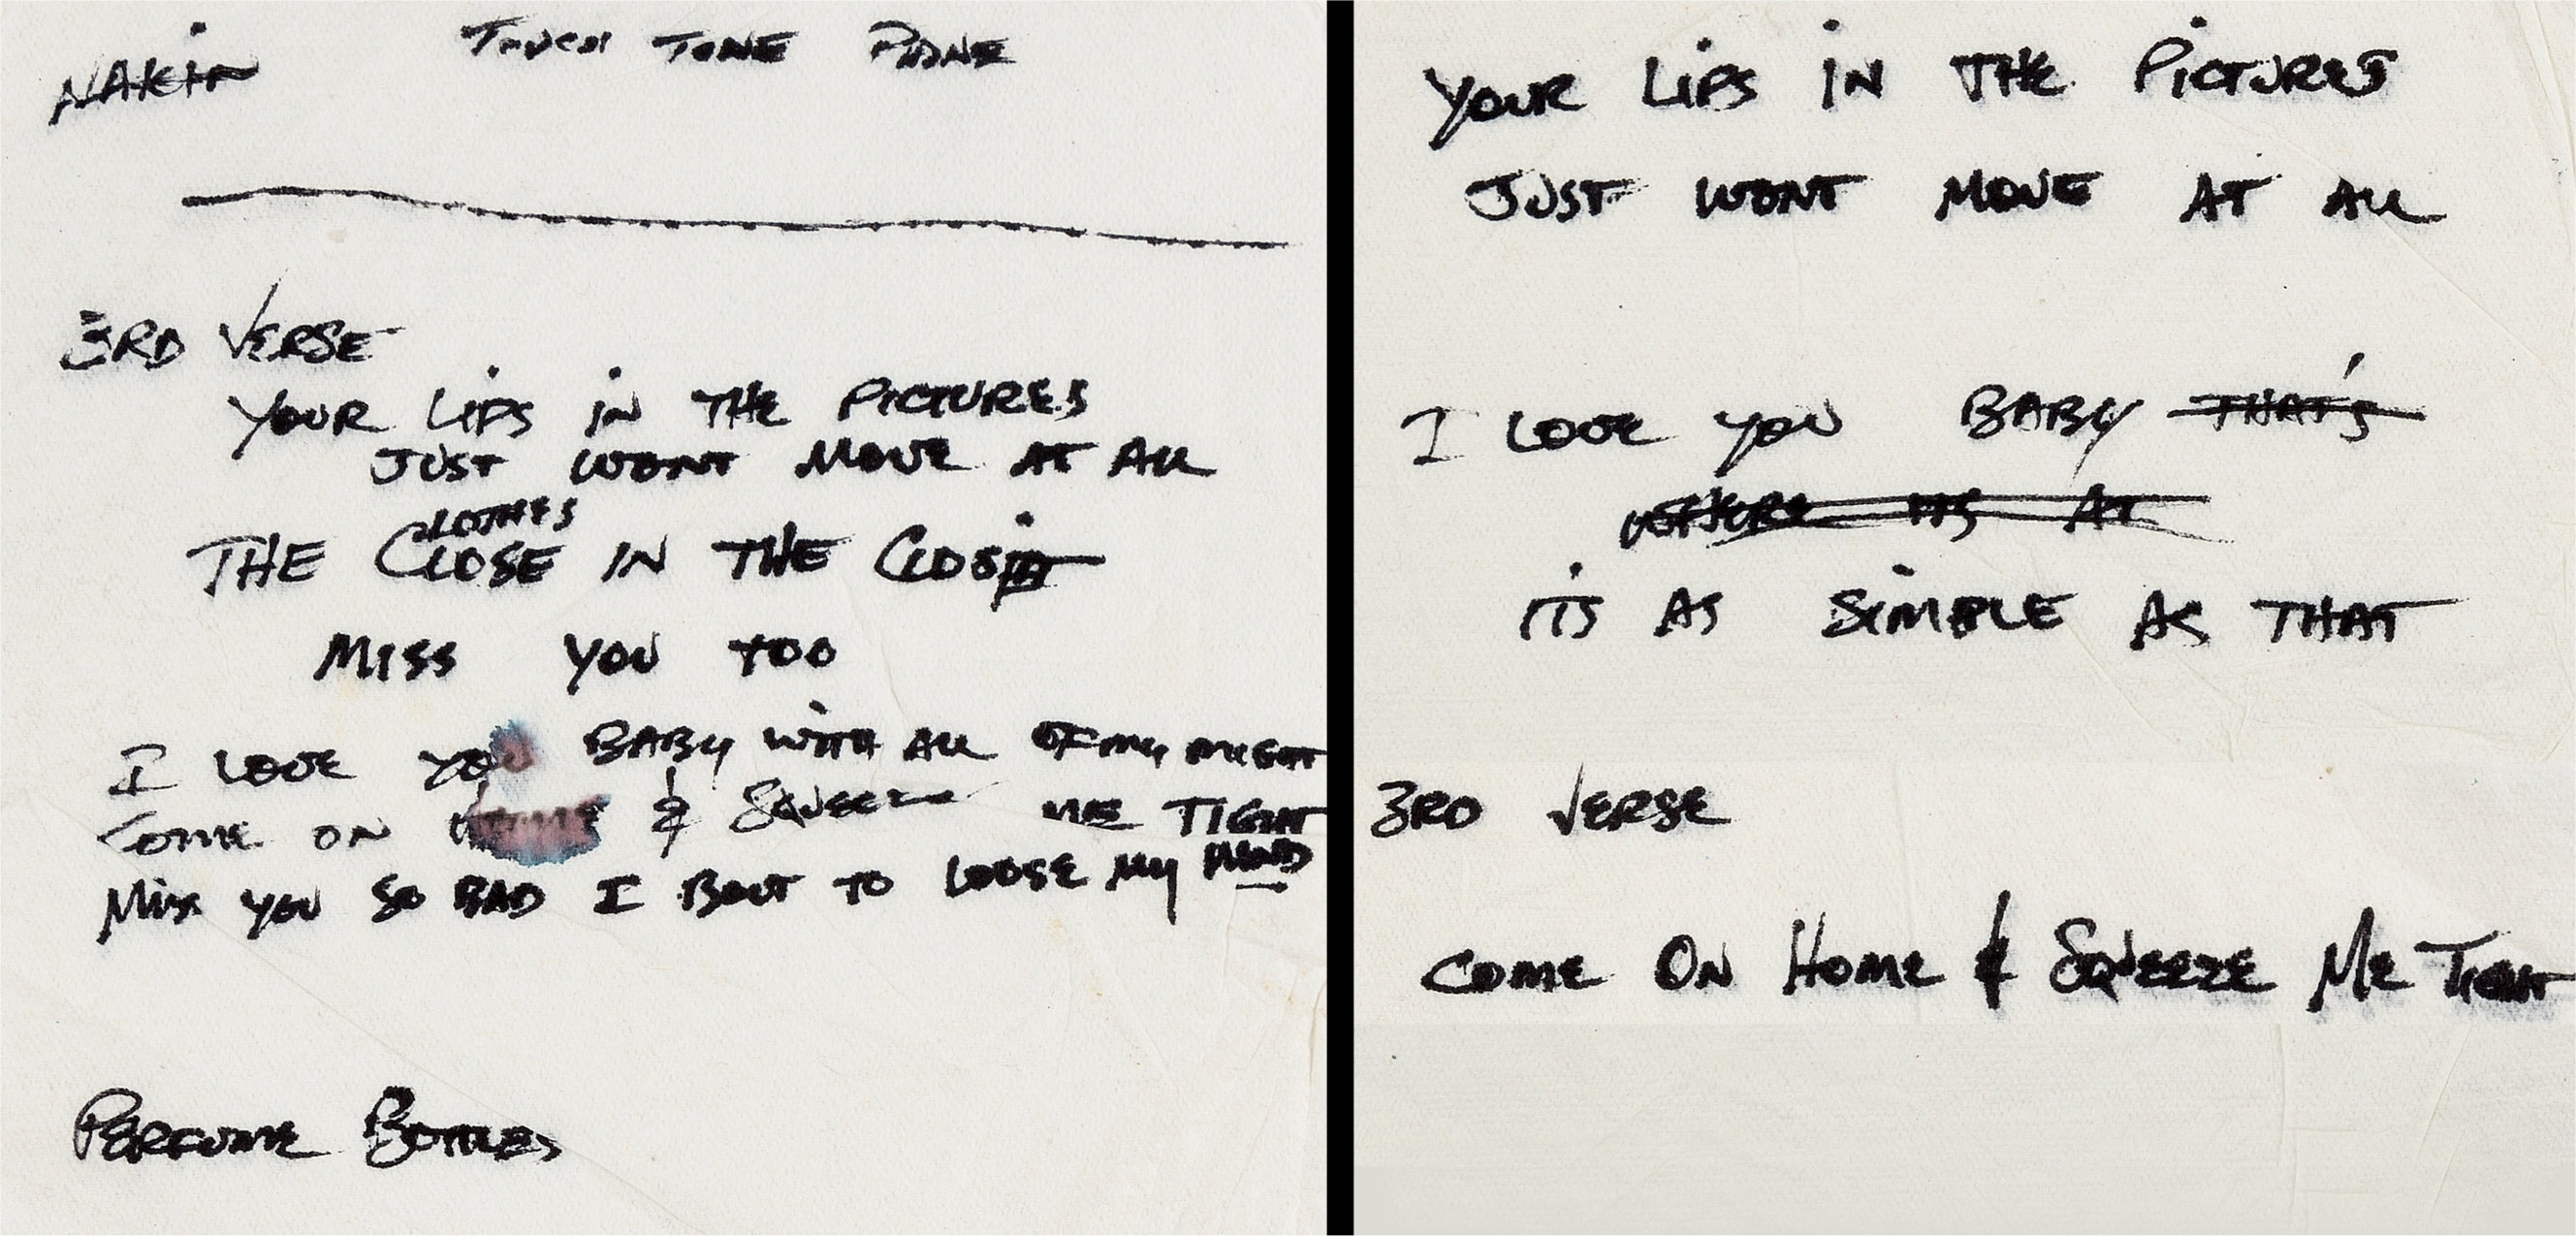 TOUCH TONE PHONE
3RD VERSE
YOUR LIPS IN THE PICTURES
JUST WONT MOVE AT ALL
CLOTHES
THE CLOSE IN THE
MISS YOU TOO
I LOVE YOU BABY WITH ALL OF MY MIGHT
COME ON HOME & SQUEEZE ME TIGHT
MISS YOU SO BAD I BOUT TO LOOSE MY MIND
PERFUME BOTTLES
YOUR LIPS IN THE PICTURES
JUST WONT MOVE AT ALL
I LOVE YOU BABY THAT'S
WHERE ITS AT
ITS AS SIMPLE AS THAT
3RD VERSE
COME ON HOME & SQUEEZE ME TIGHT